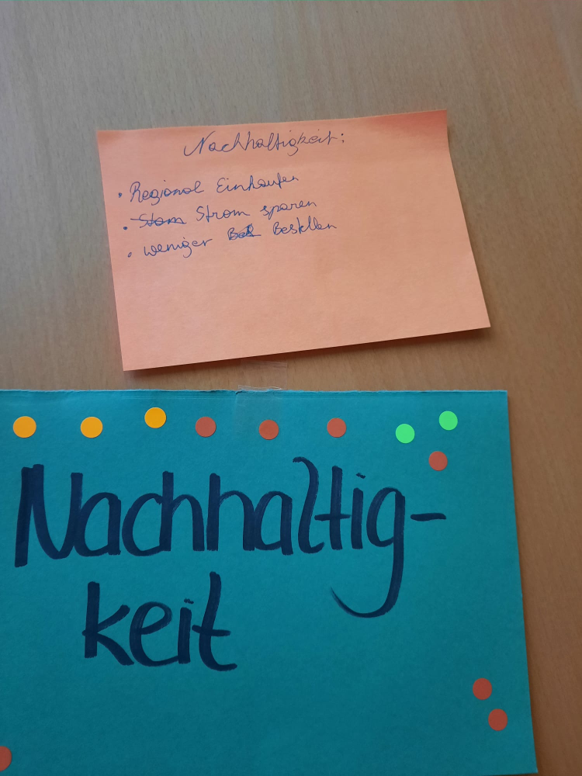 Nachhaltigkeit:
• Regional Einkaufen
• Strom sparen
• weniger Bestellen
Nachhaltig-
keit